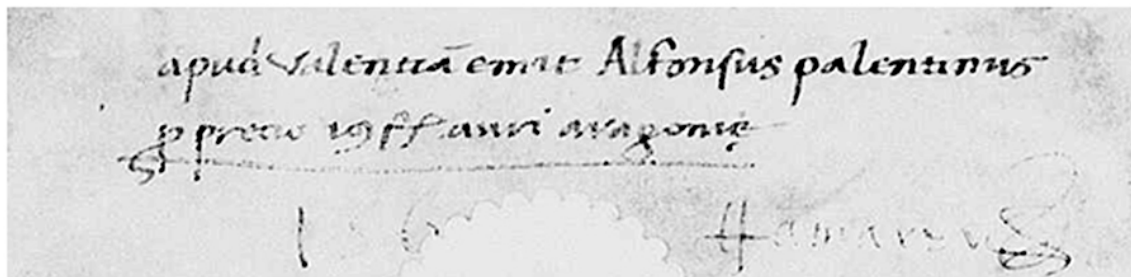 apud valentiā emit Alfonsus palentinus
ꝓ precio 19 ff auri aragonię